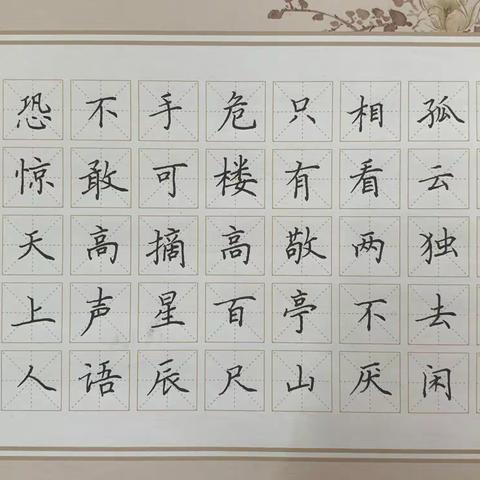 孤云独去闲
相看两不厌
只有敬亭山
危楼高百尺
手可摘星辰
不敢高声语
恐惊天上人